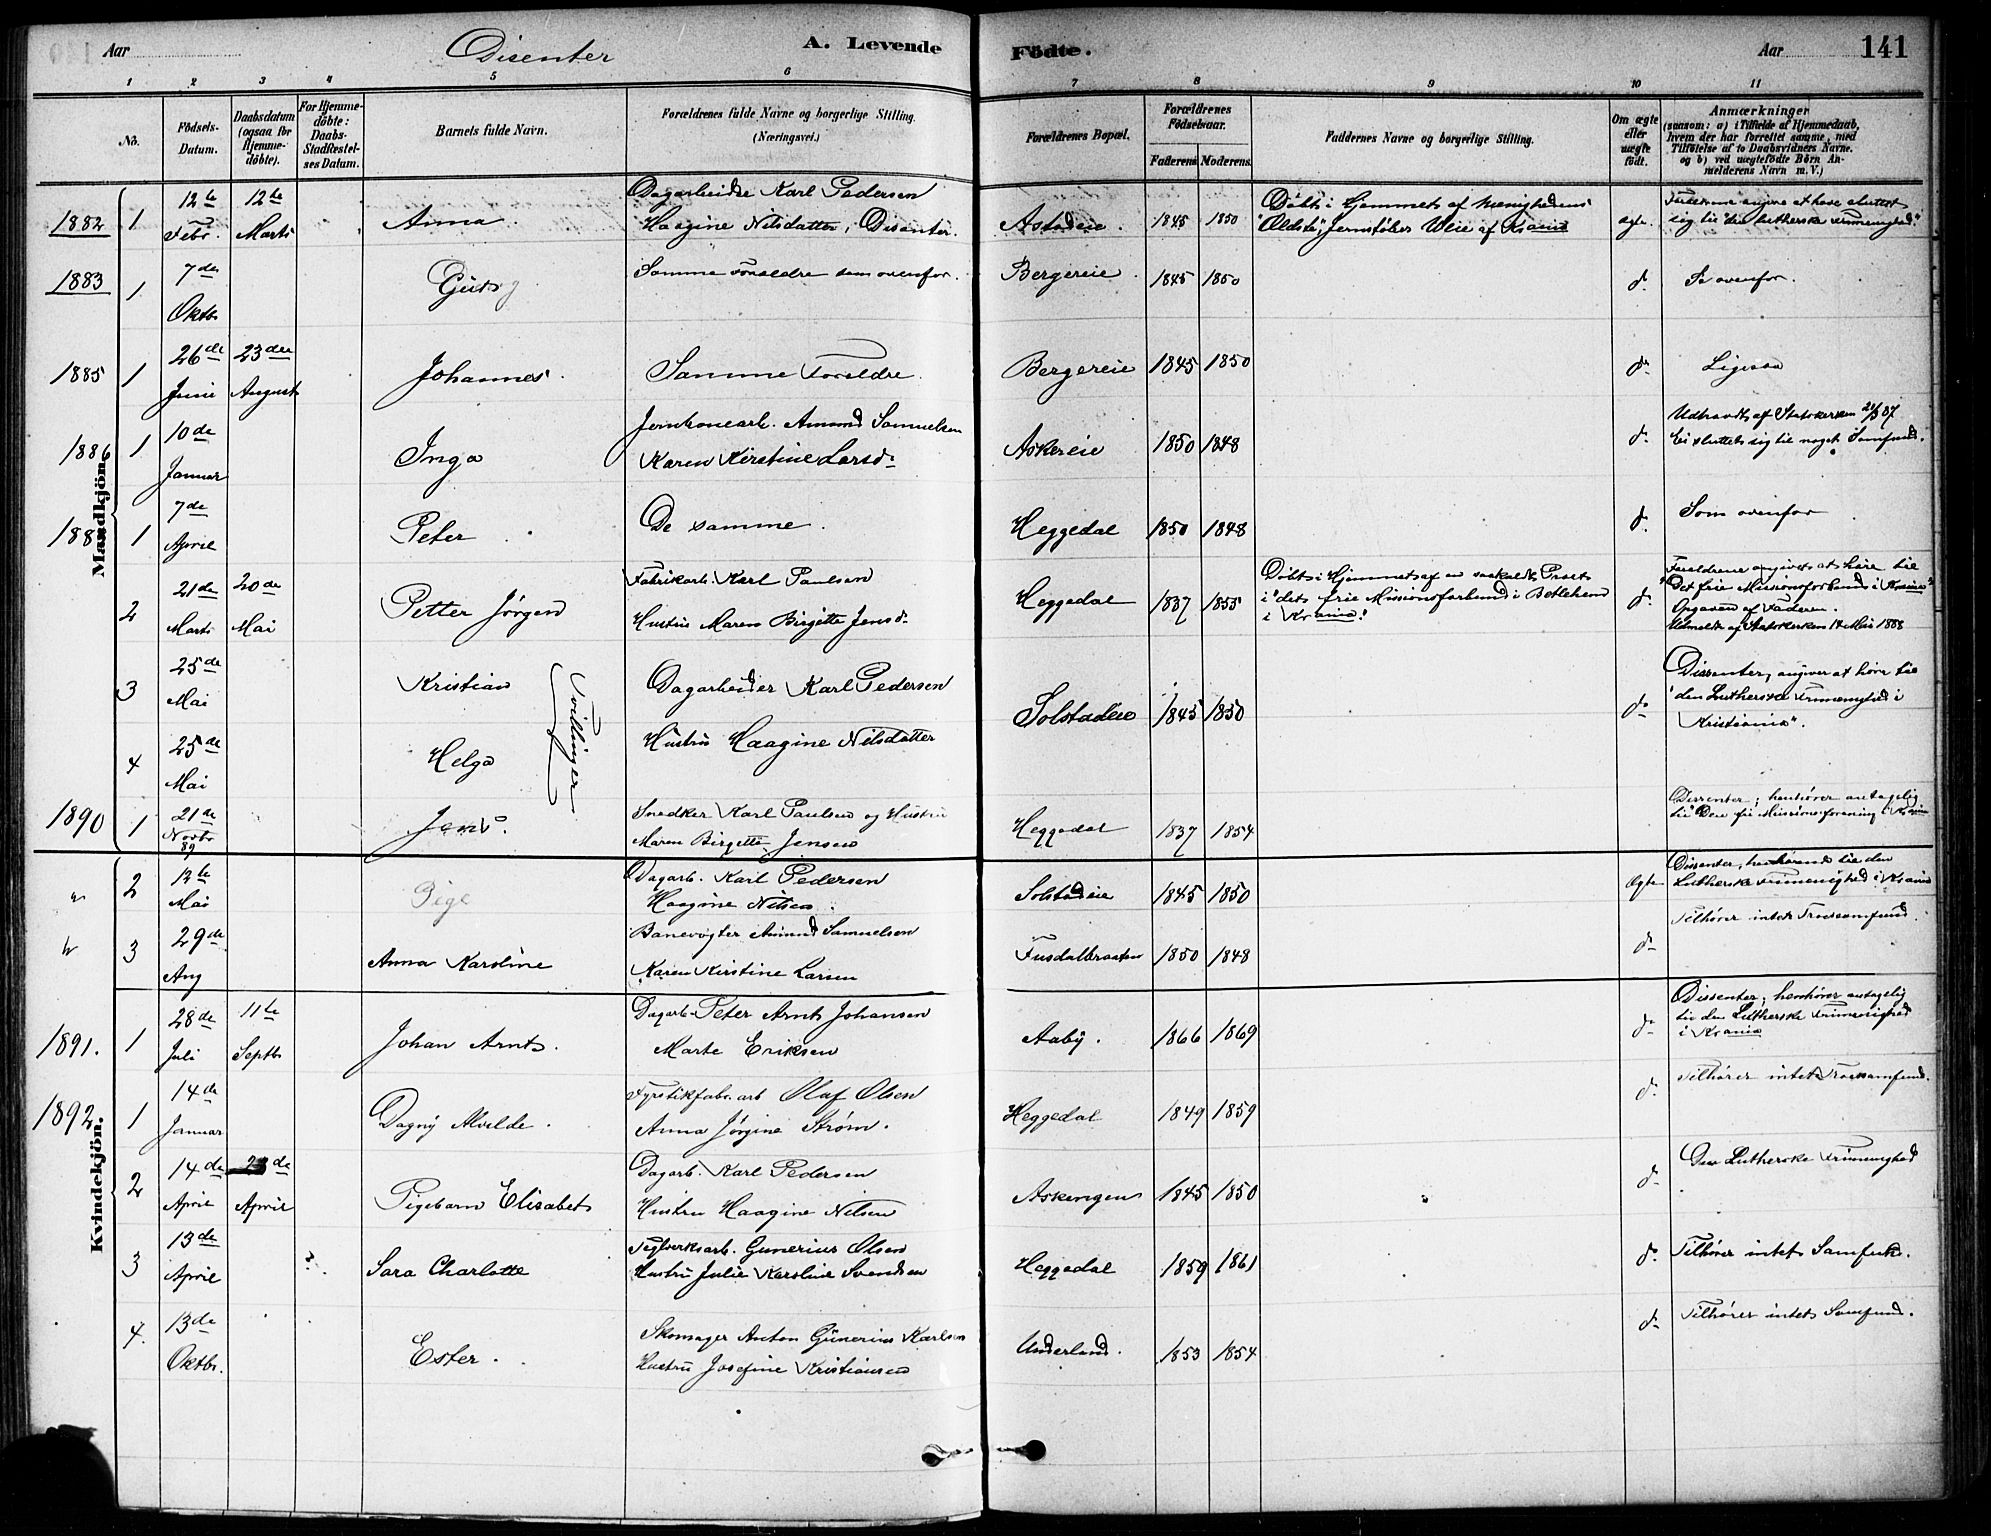 Aar
Disenter
A. Levende
Födte.
Aar
141
1 2 3 4 5 6 7 8 9 10 11
No.
Födsels-Datum.
Daabsdatum (ogsaa for Hjemme-döbte).
For Hjemme-döbte: Daabs-Stadfæstel-ses Datum.
Barnets fulde Navn.
Forældrenes fulde Navne og borgerlige Stilling.
(Næringsvei.)
Forældrenes Bopæl.
Forældrenes Födselsaar.
Faderens. Moderens.
Faddernes Navne og borgerlige Stilling.
Om ægte eller uægte födt.
Anmærkninger
(saasom: a) i Tilfælde af Hjemmedaab,
hvem der har forrettet samme, med
Tilföielse af to Daabsvidners Navne.
og b) ved uægtefödte Börn An-
melderens Navn m. V.)
Mandkjön.
Kvindekjön.
1882 1 12te Febr. 12te Marts Anna. Dagarbeider Karl Pedersen
Haagine Nilsdatter, Disenter. Astadeie. 1845 1850 Døbt i Hjemmet af Menighedens
"Ældste", Jernstøber Weie af Krania ægte. Forældrene angive at have sluttet
sig til "den lutherske Frimenighed"
1883 1 7de Oktbr Samme Forældre som ovenfor. Bergereie 1845 1850 do Se ovenfor.
1885 1 26de Juni 23de August Johannes. Samme Forældre. Bergereie 1845 1850 do Ligesaa
1886 1 10de Januar Inga Jernbanearb. Amund Samuelsen
Karen Kirstine Larsd. Askereie 1850 1848 do Udtraadt af Statskirken
Ei sluttet sig til noget Samfund.
188 1 7de April Peter De samme. Heggedal 1850 1848 do Som ovenfor
2 21de Marts 20de Mai Petter Jörgen Fabrikarb. Karl Paulsen
Hustru Maren Birgitte Jensd. Heggedal 1837 1855 Døbt i Hjemmet af en saakaldt Præst
i "det frie Missionsforbund i Bethlehem
i Krania" do Forældrene opgivet at høre til
"Det frie Missionsforbund i Krania"
Opgaven af Faderen.
Udmeldt af Statskirken 14 Mai 1888
3 25de Mai Kristian Dagarbeider Karl Pedersen
Tvillinger Solstadeie 1845 1850 do Dissenter, angiver at høre til
"den Lutherske Frimenighed i
Kristiania".
4 25de Mai Helga Hustru Haagine Nilsdatter
1890 1 21de Novbr 89 Jens. Snedker Karl Paulsen og Hustru
Maren Birgitte Jensen Heggedal 1837 1854 Dissenter; henhører antagelig
til Den frie Missionsforening i Krania
" 2 12te Mai Pige Dagarb. Karl Pedersen
Haagine Nilsen. Solstadeie 1845 1850 Ægte Dissenter, henhørende til den
Lutherske Frimenighed i Krania
" 3 29de Aug Anna Karoline Banevogter Amund Samuelsen
Karen Kirstine Larsen Fusdalbraaten 1850 1848 do Tilhører intet Troessamfund.
1891. 1 28de Juli 11te Septbr Johan Arnt. Dagarb. Peter Arnt Johansen
Marte Eriksen Aaby. 1866 1869 do Dissenter; henhører antagelig
til den Lutherske Frimenighed
i Krania
1892. 1 14de Januar Dagny Alvilde. Fyrstikfabr.arb Olaf Olsen
Anna Jørgine Strøm. Heggedal 1849 1859 do Tilhører intet Trossamfund.
2 14de April de April Pigebarn Elisabet Dagarb. Karl Pedersen
Hustru Haagine Nilsen Askengen 1845 1850 do Den Lutherske Frimenighed
3 13de April ? Sara Charlotte Teglverksarb. Gunerius Olsen
Hustru Julie Karoline Svendsen Heggedal 1859 1861 do Tilhører intet Samfund.
4. 13de Oktbr. Ester. Skomager Anton Gunerius Karlsen
Hustru Josefine Kristiansen Underland. 1853 1854 do Tilhører intet Samfund.